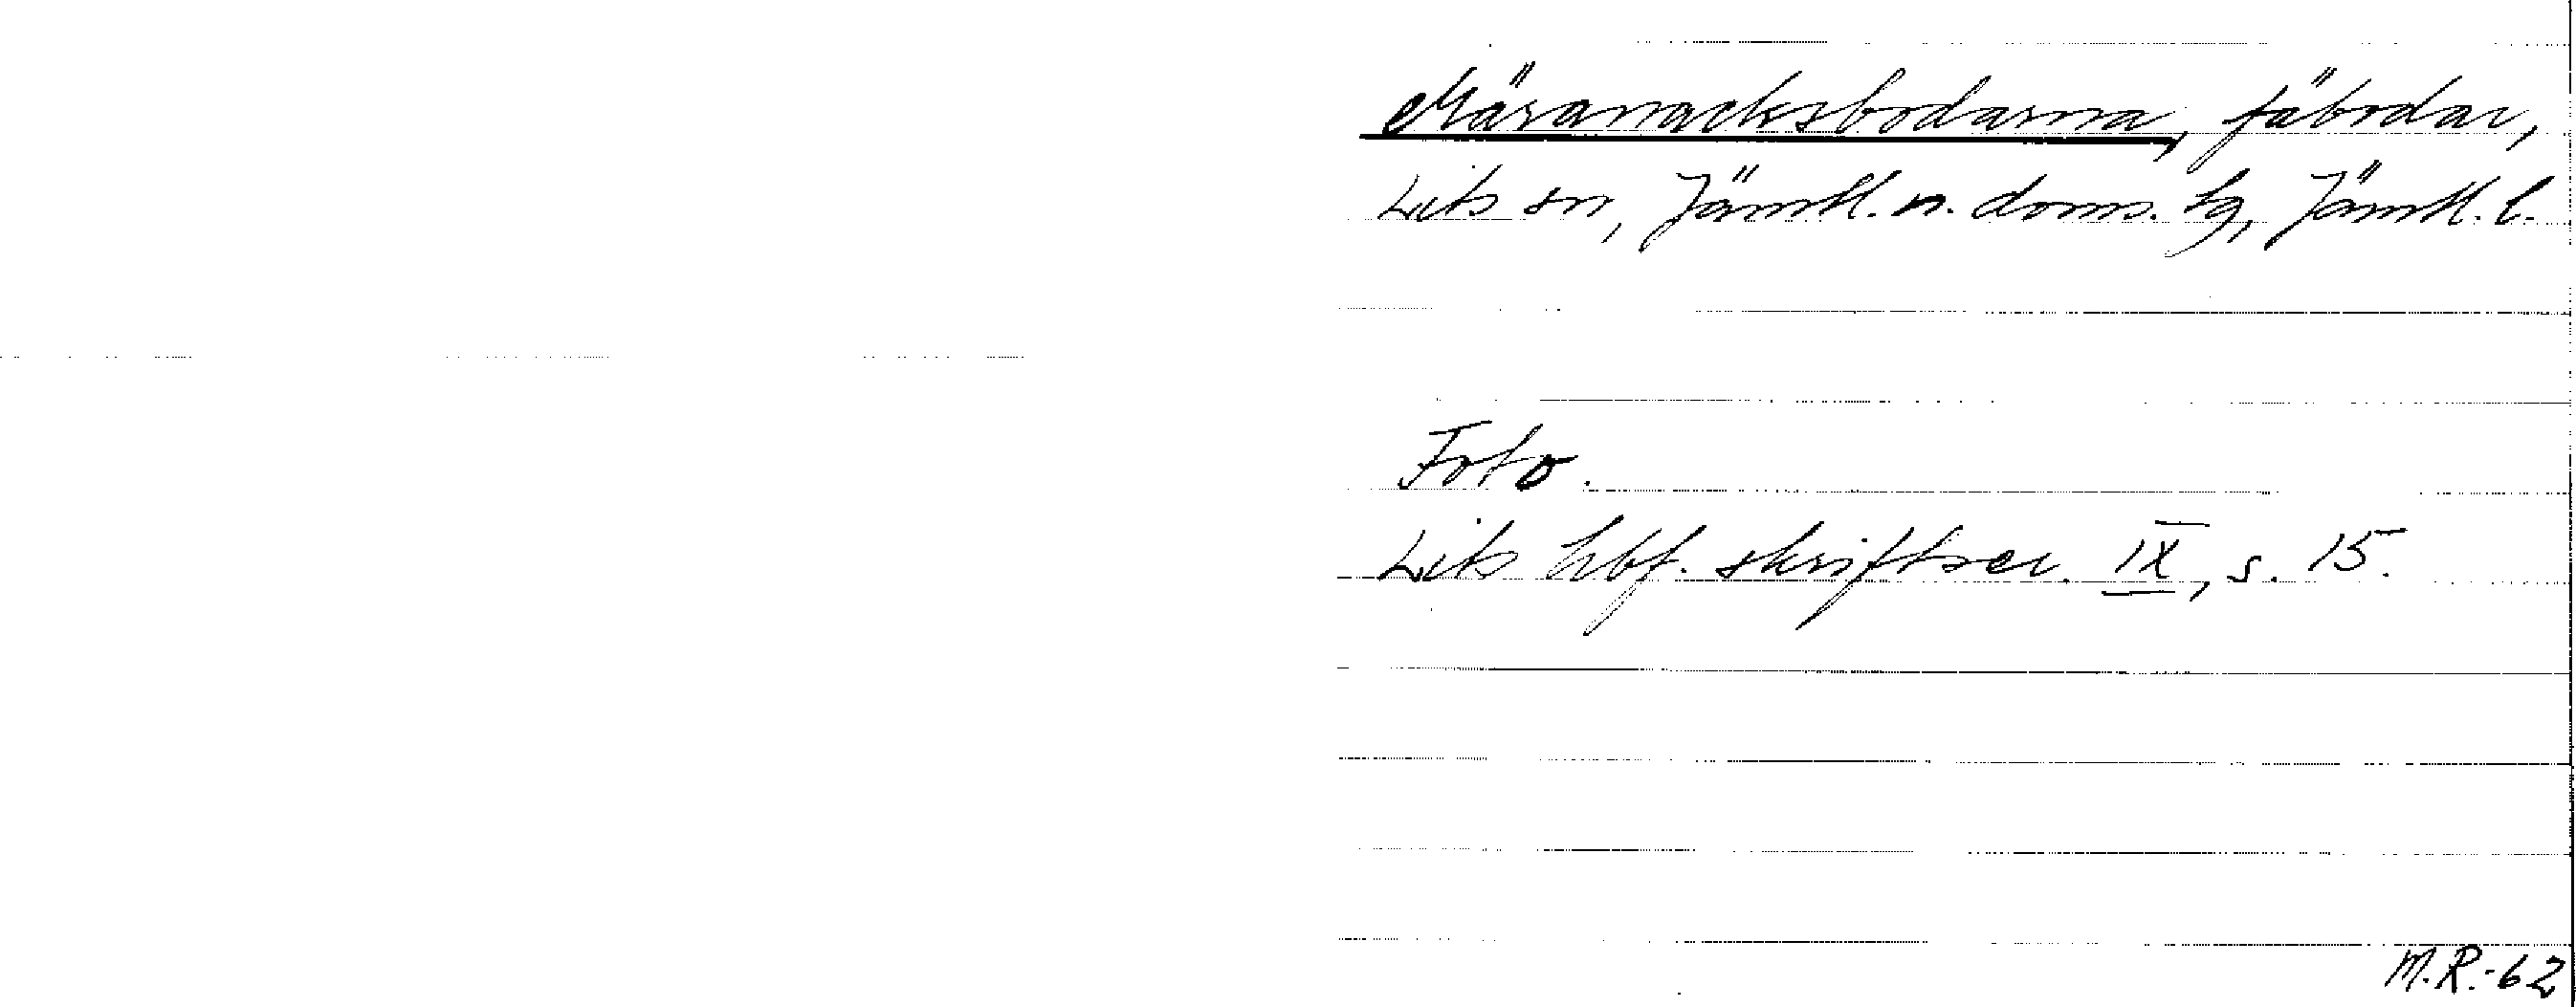 Märanacksbodarna, fäbodar,
Lits sn, Jämtl. n. doms. tg, Jämtl. l.
Foto.
Lits hbf. skriftser. IX, s. 15.
M.R.-62